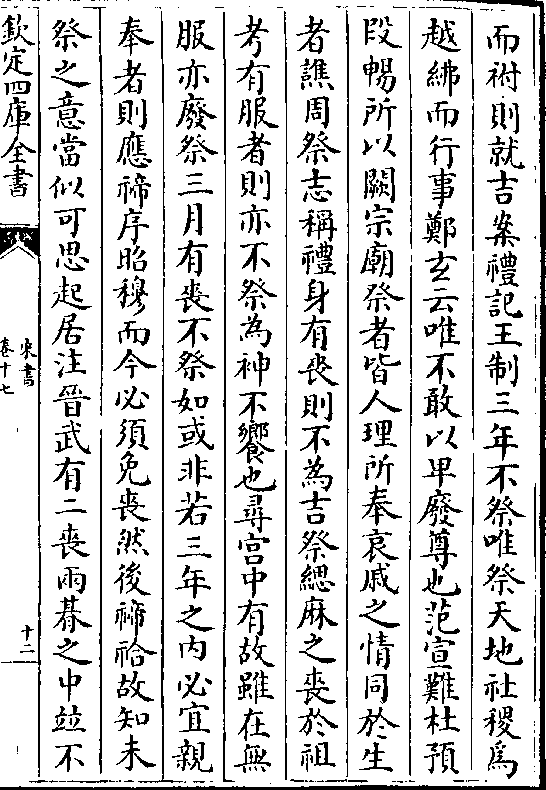 而祔則就吉案禮記王制三年不祭唯祭天地社稷爲
越紼而行事鄭玄云唯不敢以卑廢尊也范宣難杜預
段暢所以闕宗廟祭者皆人理所奉哀戚之情同於生
者譙周祭志稱禮身有喪則不為吉祭緦麻之喪於祖
考有服者則亦不祭為神不饗也尋宫中有故雖在無
服亦廢祭三月有喪不祭如或非若三年之内必宜親
奉者則應禘序昭穆而今必須免喪然後禘祫故知未
祭之意當似可思起居注晉武有二喪兩朞之中並不
欽定四庫全書
宋書
卷十七
十二